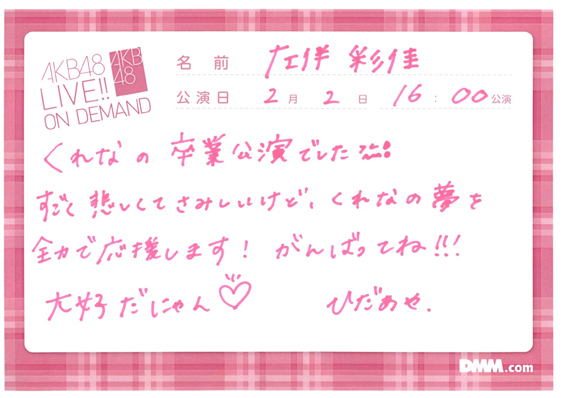 AKB48
LIVE!!
ON DEMAND
AKB
48
名前 左伴 彩佳
公演日 2月2日 16:00公演
くれなの 卒業公演でした
すごく 悲しくてさみしいけど、くれなの夢を
全力で応援します！ がんばってね!!!
大好きだにゃん♡ ひだあや.
DMM.com